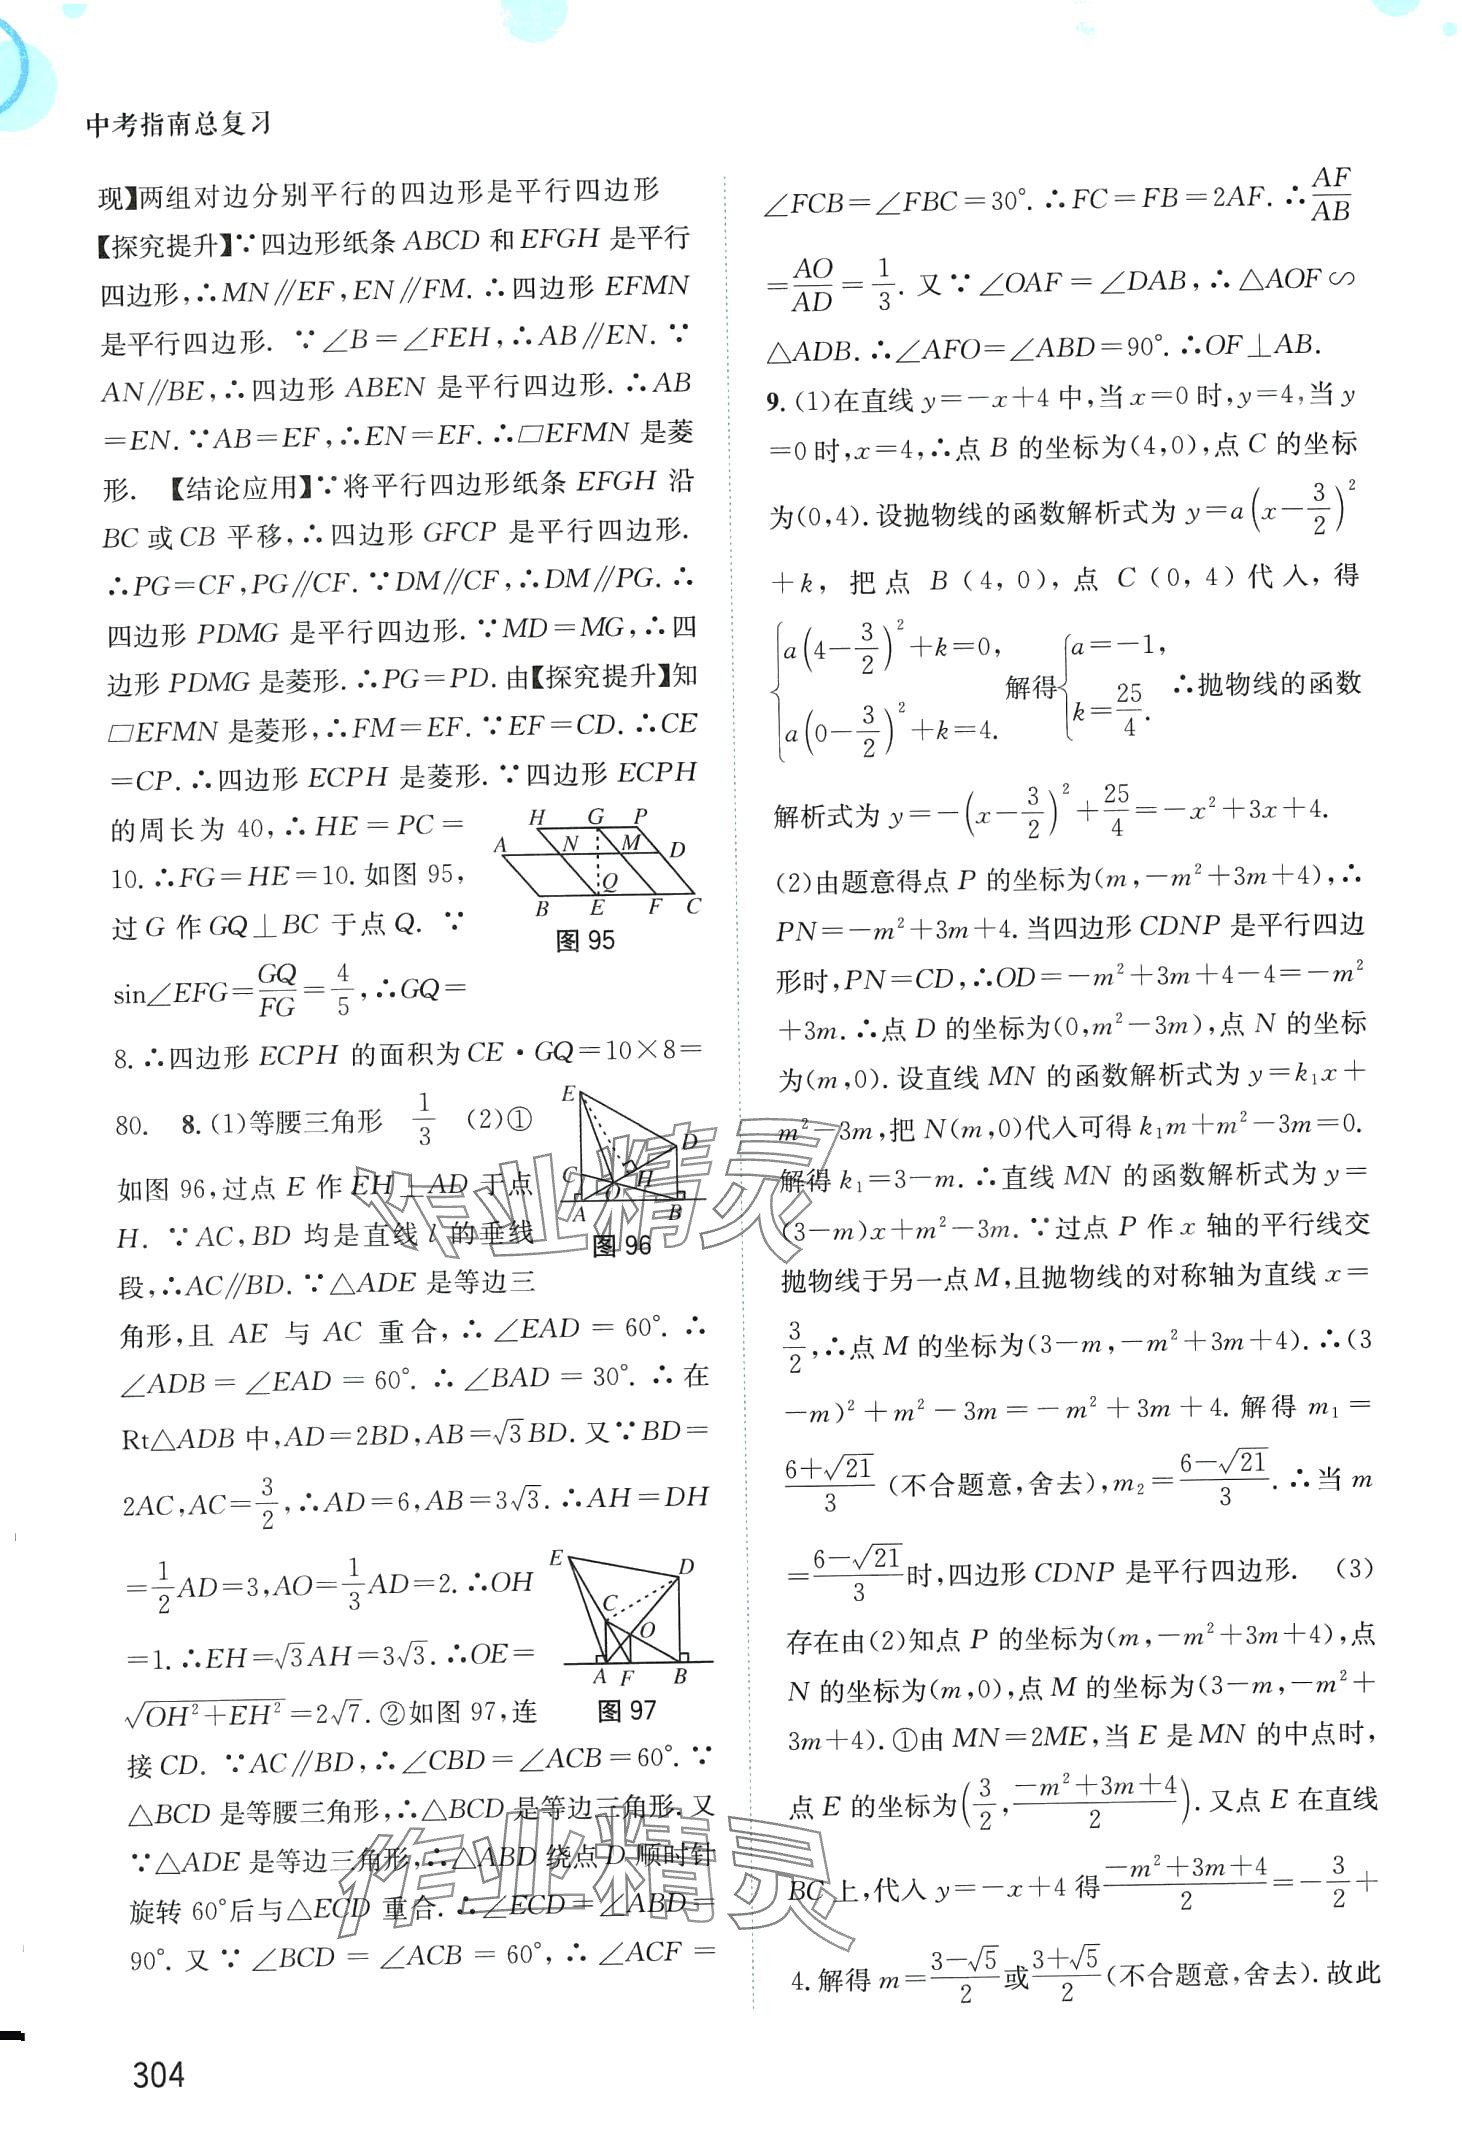 中考指南总复习
现】两组对边分别平行的四边形是平行四边形
【探究提升】∵四边形纸条 ABCD 和 EFGH 是平行
四边形,∴MN∥EF,EN∥FM. ∴四边形 EFMN
是平行四边形. ∵∠B=∠FEH,∴AB∥EN. ∵
AN∥BE,∴四边形 ABEN 是平行四边形. ∴AB
=EN. ∵AB=EF,∴EN=EF. ∴□EFMN 是菱
形. 【结论应用】∵将平行四边形纸条 EFGH 沿
BC 或 CB 平移,∴四边形 GFCP 是平行四边形.
∴PG=CF,PG∥CF. ∵DM∥CF,∴DM∥PG. ∴
四边形 PDMG 是平行四边形. ∵MD=MG,∴四
边形 PDMG 是菱形. ∴PG=PD. 由【探究提升】知
□EFMN 是菱形,∴FM=EF. ∵EF=CD. ∴CE
=CP. ∴四边形 ECPH 是菱形. ∵四边形 ECPH
的周长为 40,∴HE=PC=
10. ∴FG=HE=10. 如图 95,
过 G 作 GQ⊥BC 于点 Q. ∵
sin∠EFG=GQ/FG=4/5,∴GQ=
H G P
A N M D
Q
B E F C
图 95
8. ∴四边形 ECPH 的面积为 CE·GQ=10×8=
80. 8. (1)等腰三角形 1/3 (2)①
如图 96,过点 E 作 EH⊥AD 于点
H. ∵AC,BD 均是直线 l 的垂线
段,∴AC∥BD. ∵△ADE 是等边三
E
D
C
O H
A B
图 96
角形,且 AE 与 AC 重合,∴∠EAD=60°. ∴
∠ADB=∠EAD=60°. ∴∠BAD=30°. ∴在
Rt△ADB 中,AD=2BD,AB=√3BD. 又∵BD=
2AC,AC=3/2,∴AD=6,AB=3√3. ∴AH=DH
=1/2AD=3,AO=1/3AD=2. ∴OH
=1. ∴EH=√3AH=3√3. ∴OE=
√(OH²+EH²)=2√7. ②如图 97,连
E
D
C
O
A F B
图 97
接 CD. ∵AC∥BD,∴∠CBD=∠ACB=60°. ∵
△BCD 是等腰三角形,∴△BCD 是等边三角形. 又
∵△ADE 是等边三角形,∴△ABD 绕点 D 顺时针
旋转 60°后与△ECD 重合. ∴∠ECD=∠ABD=
90°. 又∵∠BCD=∠ACB=60°,∴∠ACF=
∠FCB=∠FBC=30°. ∴FC=FB=2AF. ∴AF/AB
=AO/AD=1/3. 又∵∠OAF=∠DAB,∴△AOF∽
△ADB. ∴∠AFO=∠ABD=90°. ∴OF⊥AB.
9. (1)在直线 y=-x+4 中,当 x=0 时,y=4,当 y
=0 时,x=4,∴点 B 的坐标为(4,0),点 C 的坐标
为(0,4). 设抛物线的函数解析式为 y=a(x-3/2)²
+k, 把点 B(4,0),点 C(0,4)代入,得
{a(4-3/2)²+k=0, a(0-3/2)²+k=4. 解得{a=-1, k=25/4. ∴抛物线的函数
解析式为 y=-(x-3/2)²+25/4=-x²+3x+4.
(2)由题意得点 P 的坐标为(m,-m²+3m+4),∴
PN=-m²+3m+4. 当四边形 CDNP 是平行四边
形时,PN=CD,∴OD=-m²+3m+4-4=-m²
+3m. ∴点 D 的坐标为(0,m²-3m),点 N 的坐标
为(m,0). 设直线 MN 的函数解析式为 y=k₁x+
m²-3m,把 N(m,0)代入可得 k₁m+m²-3m=0.
解得 k₁=3-m. ∴直线 MN 的函数解析式为 y=
(3-m)x+m²-3m. ∵过点 P 作 x 轴的平行线交
抛物线于另一点 M,且抛物线的对称轴为直线 x=
3/2,∴点 M 的坐标为(3-m,-m²+3m+4). ∴(3
-m)²+m²-3m=-m²+3m+4. 解得 m₁=
(6+√21)/3 (不合题意,舍去),m₂=(6-√21)/3. ∴当 m
=(6-√21)/3时,四边形 CDNP 是平行四边形. (3)
存在由(2)知点 P 的坐标为(m,-m²+3m+4),点
N 的坐标为(m,0),点 M 的坐标为(3-m,-m²+
3m+4). ①由 MN=2ME,当 E 是 MN 的中点时,
点 E 的坐标为(3/2,(-m²+3m+4)/2). 又点 E 在直线
BC 上,代入 y=-x+4 得(-m²+3m+4)/2=-3/2+
4. 解得 m=(3-√5)/2或(3+√5)/2(不合题意,舍去). 故此
304
作业精灵
作业精灵